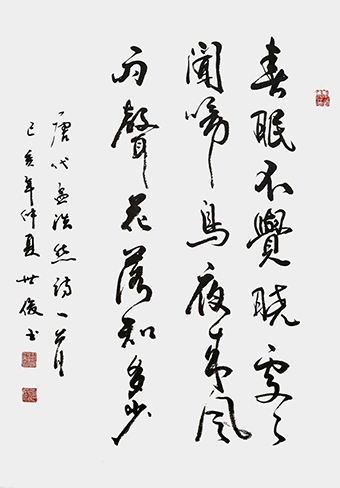 春眠不覺曉處々
聞啼鳥夜来風
雨聲花落知多少
唐代孟浩然詩一首
己亥年仲夏世俊书